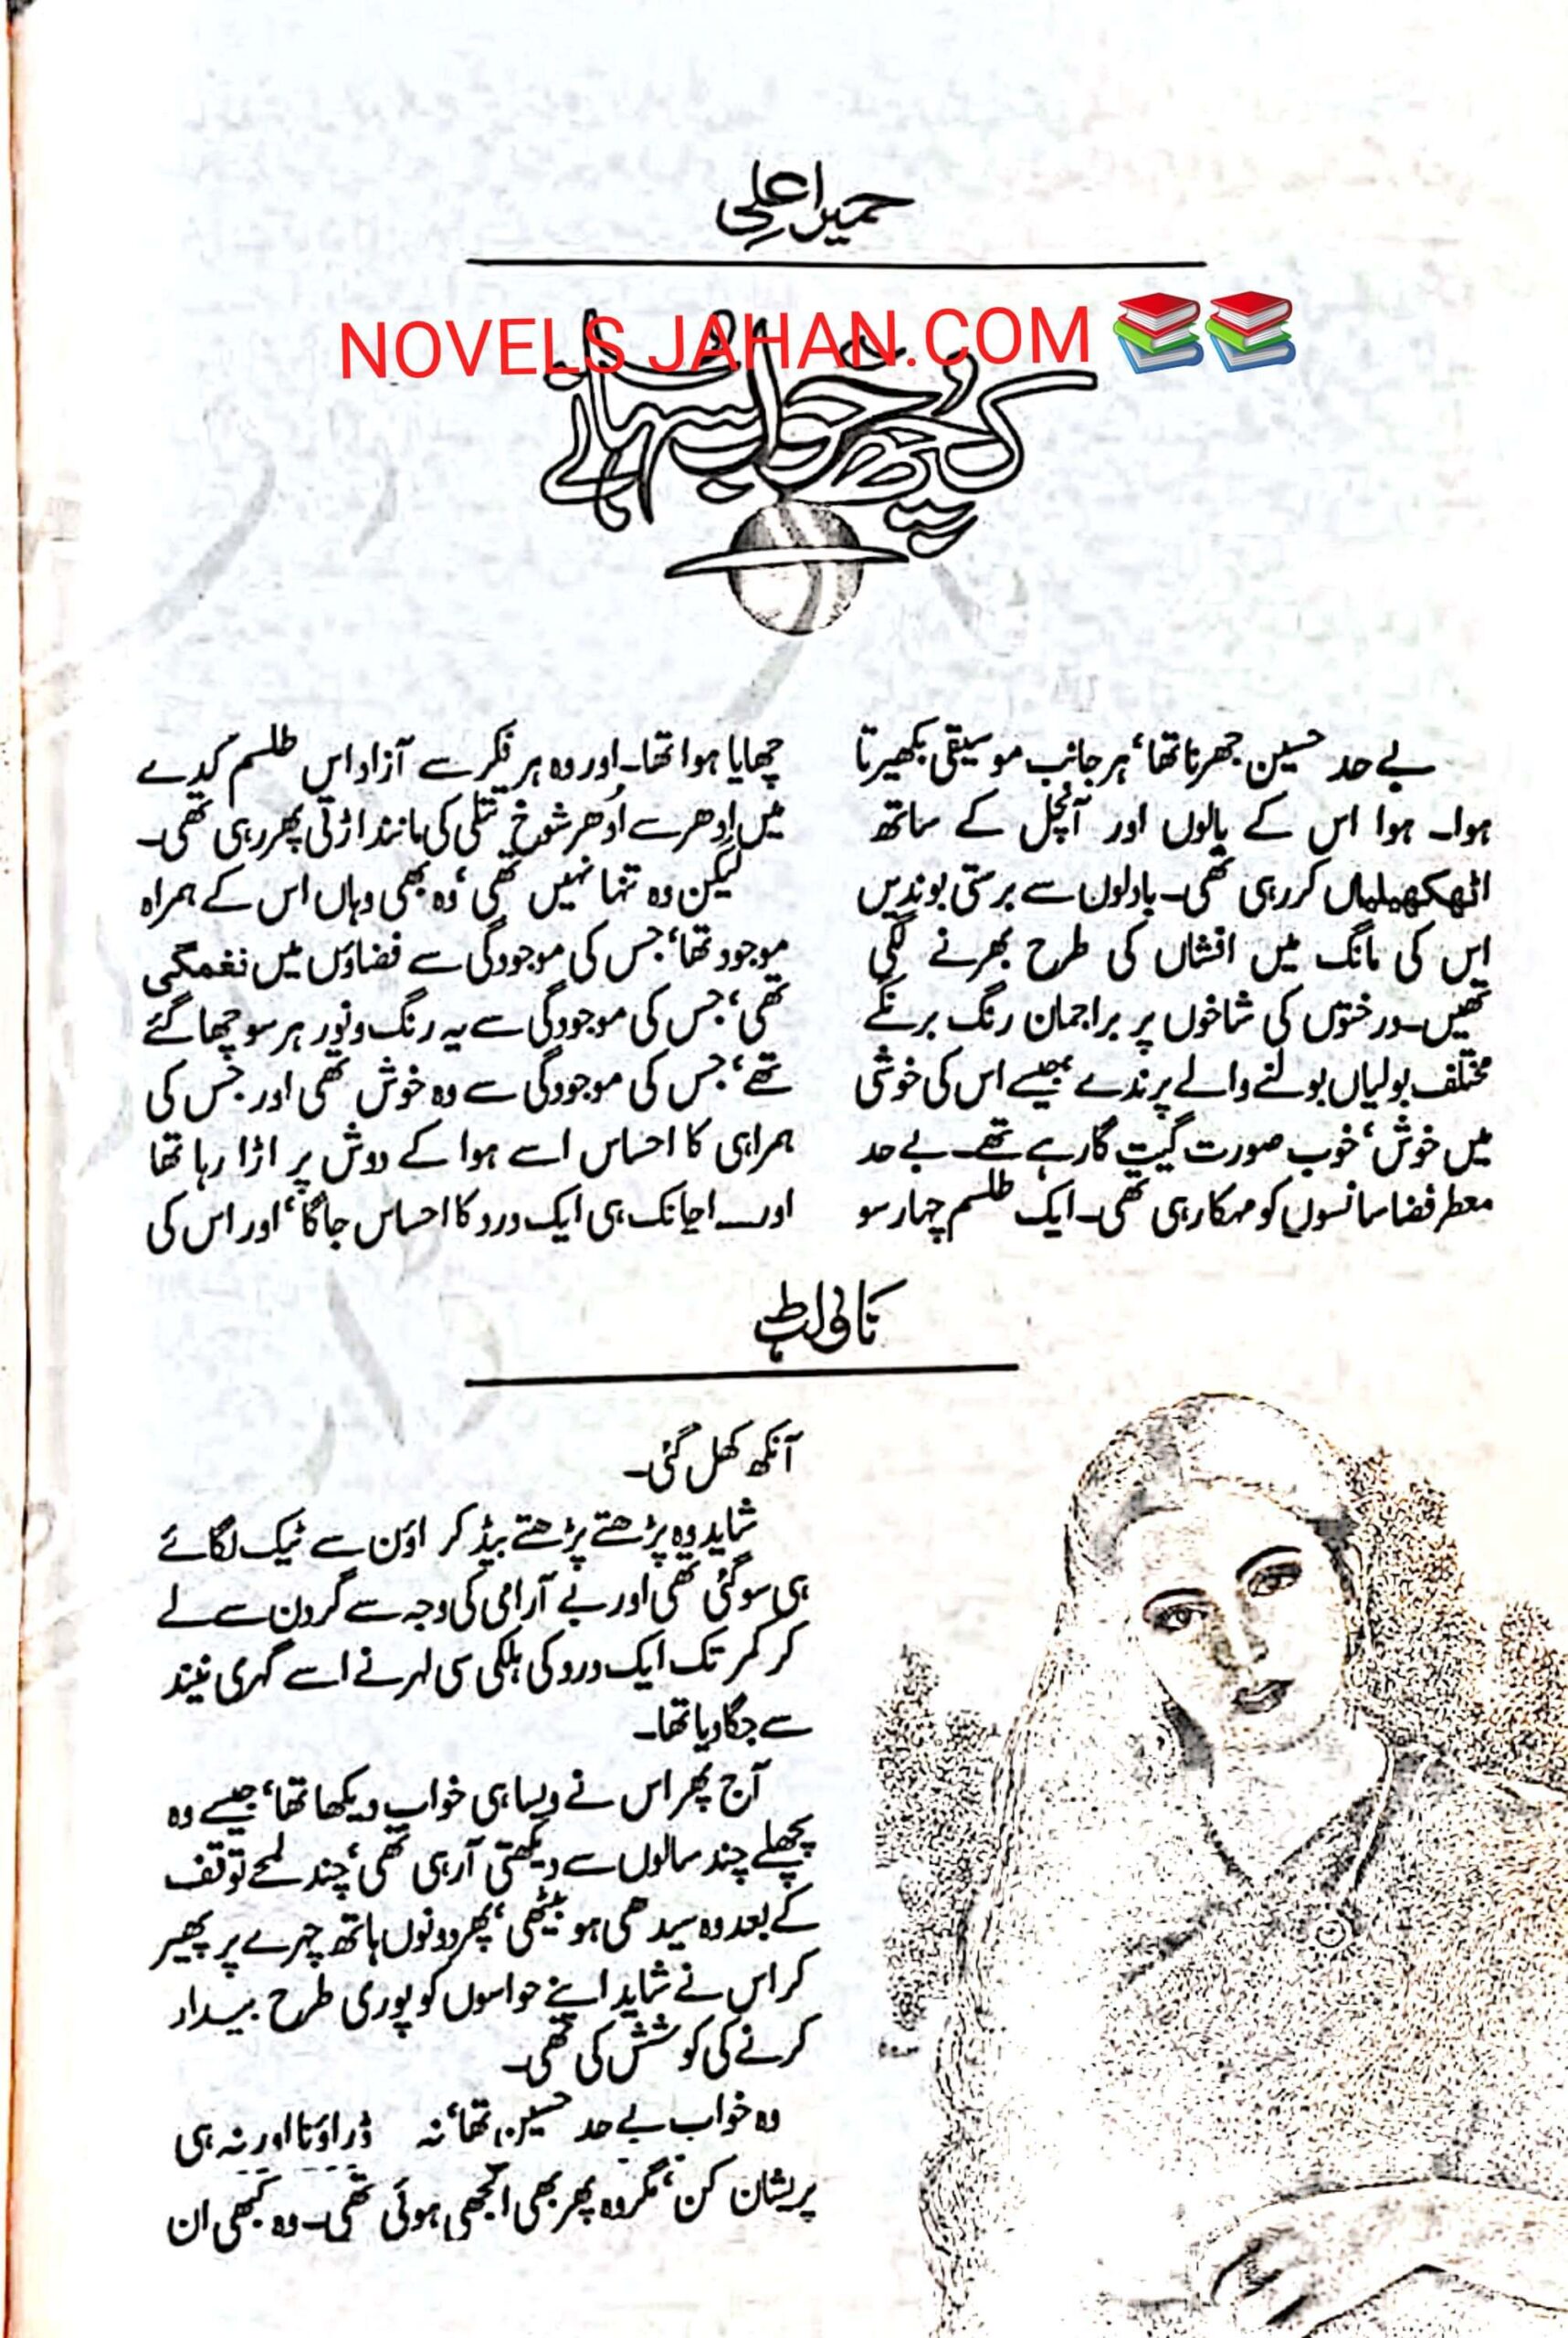 حمیرا علی
NOVELS JAHAN.COM
کچھ خواب سہانے
بے حد حسین جھرنا تھا‘ ہر جانب موسیقی بکھیرتا
ہوا۔ ہوا اس کے بالوں اور آنچل کے ساتھ
اٹھکھیلیاں کر رہی تھی۔ بادلوں سے برستی بوندیں
اس کی مانگ میں افشاں کی طرح بھرنے لگی
تھیں۔ درختوں کی شاخوں پر براجمان رنگ برنگے
مختلف بولیاں بولنے والے پرندے جیسے اس کی خوشی
میں خوش‘ خوب صورت گیت گا رہے تھے۔ بے حد
معطر فضا سانسوں کو مہکا رہی تھی۔ ایک طلسم چہار سو
چھایا ہوا تھا۔ اور وہ ہر فکر سے آزاد اس طلسم کدے
میں اِدھر سے اُدھر شوخ تتلی کی مانند اڑتی پھر رہی تھی۔
لیکن وہ تنہا نہیں تھی‘ وہ بھی وہاں اس کے ہمراہ
موجود تھا‘ جس کی موجودگی سے فضاؤں میں نغمگی
تھی‘ جس کی موجودگی سے یہ رنگ و نور ہر سو چھا گئے
تھے‘ جس کی موجودگی سے وہ خوش تھی اور جس کی
ہمراہی کا احساس اسے ہوا کے دوش پر اڑا رہا تھا
اور۔۔۔ اچانک ہی ایک درد کا احساس جاگا‘ اور اس کی
ناولٹ
آنکھ کھل گئی۔
شاید وہ پڑھتے پڑھتے بیڈ کراؤن سے ٹیک لگائے
ہی سو گئی تھی اور بے آرامی کی وجہ سے گردن سے لے
کر کمر تک ایک درد کی ہلکی سی لہر نے اسے گہری نیند
سے جگا دیا تھا۔
آج پھر اس نے ویسا ہی خواب دیکھا تھا‘ جیسے وہ
پچھلے چند سالوں سے دیکھتی آ رہی تھی‘ چند لمحے توقف
کے بعد وہ سیدھی ہو بیٹھی‘ پھر دونوں ہاتھ چہرے پر پھیر
کر اس نے شاید اپنے حواسوں کو پوری طرح بیدار
کرنے کی کوشش کی تھی۔
وہ خواب بے حد حسین تھا‘ نہ ڈراؤنا اور نہ ہی
پریشان کن‘ مگر وہ پھر بھی الجھی ہوئی تھی۔ وہ کبھی ان